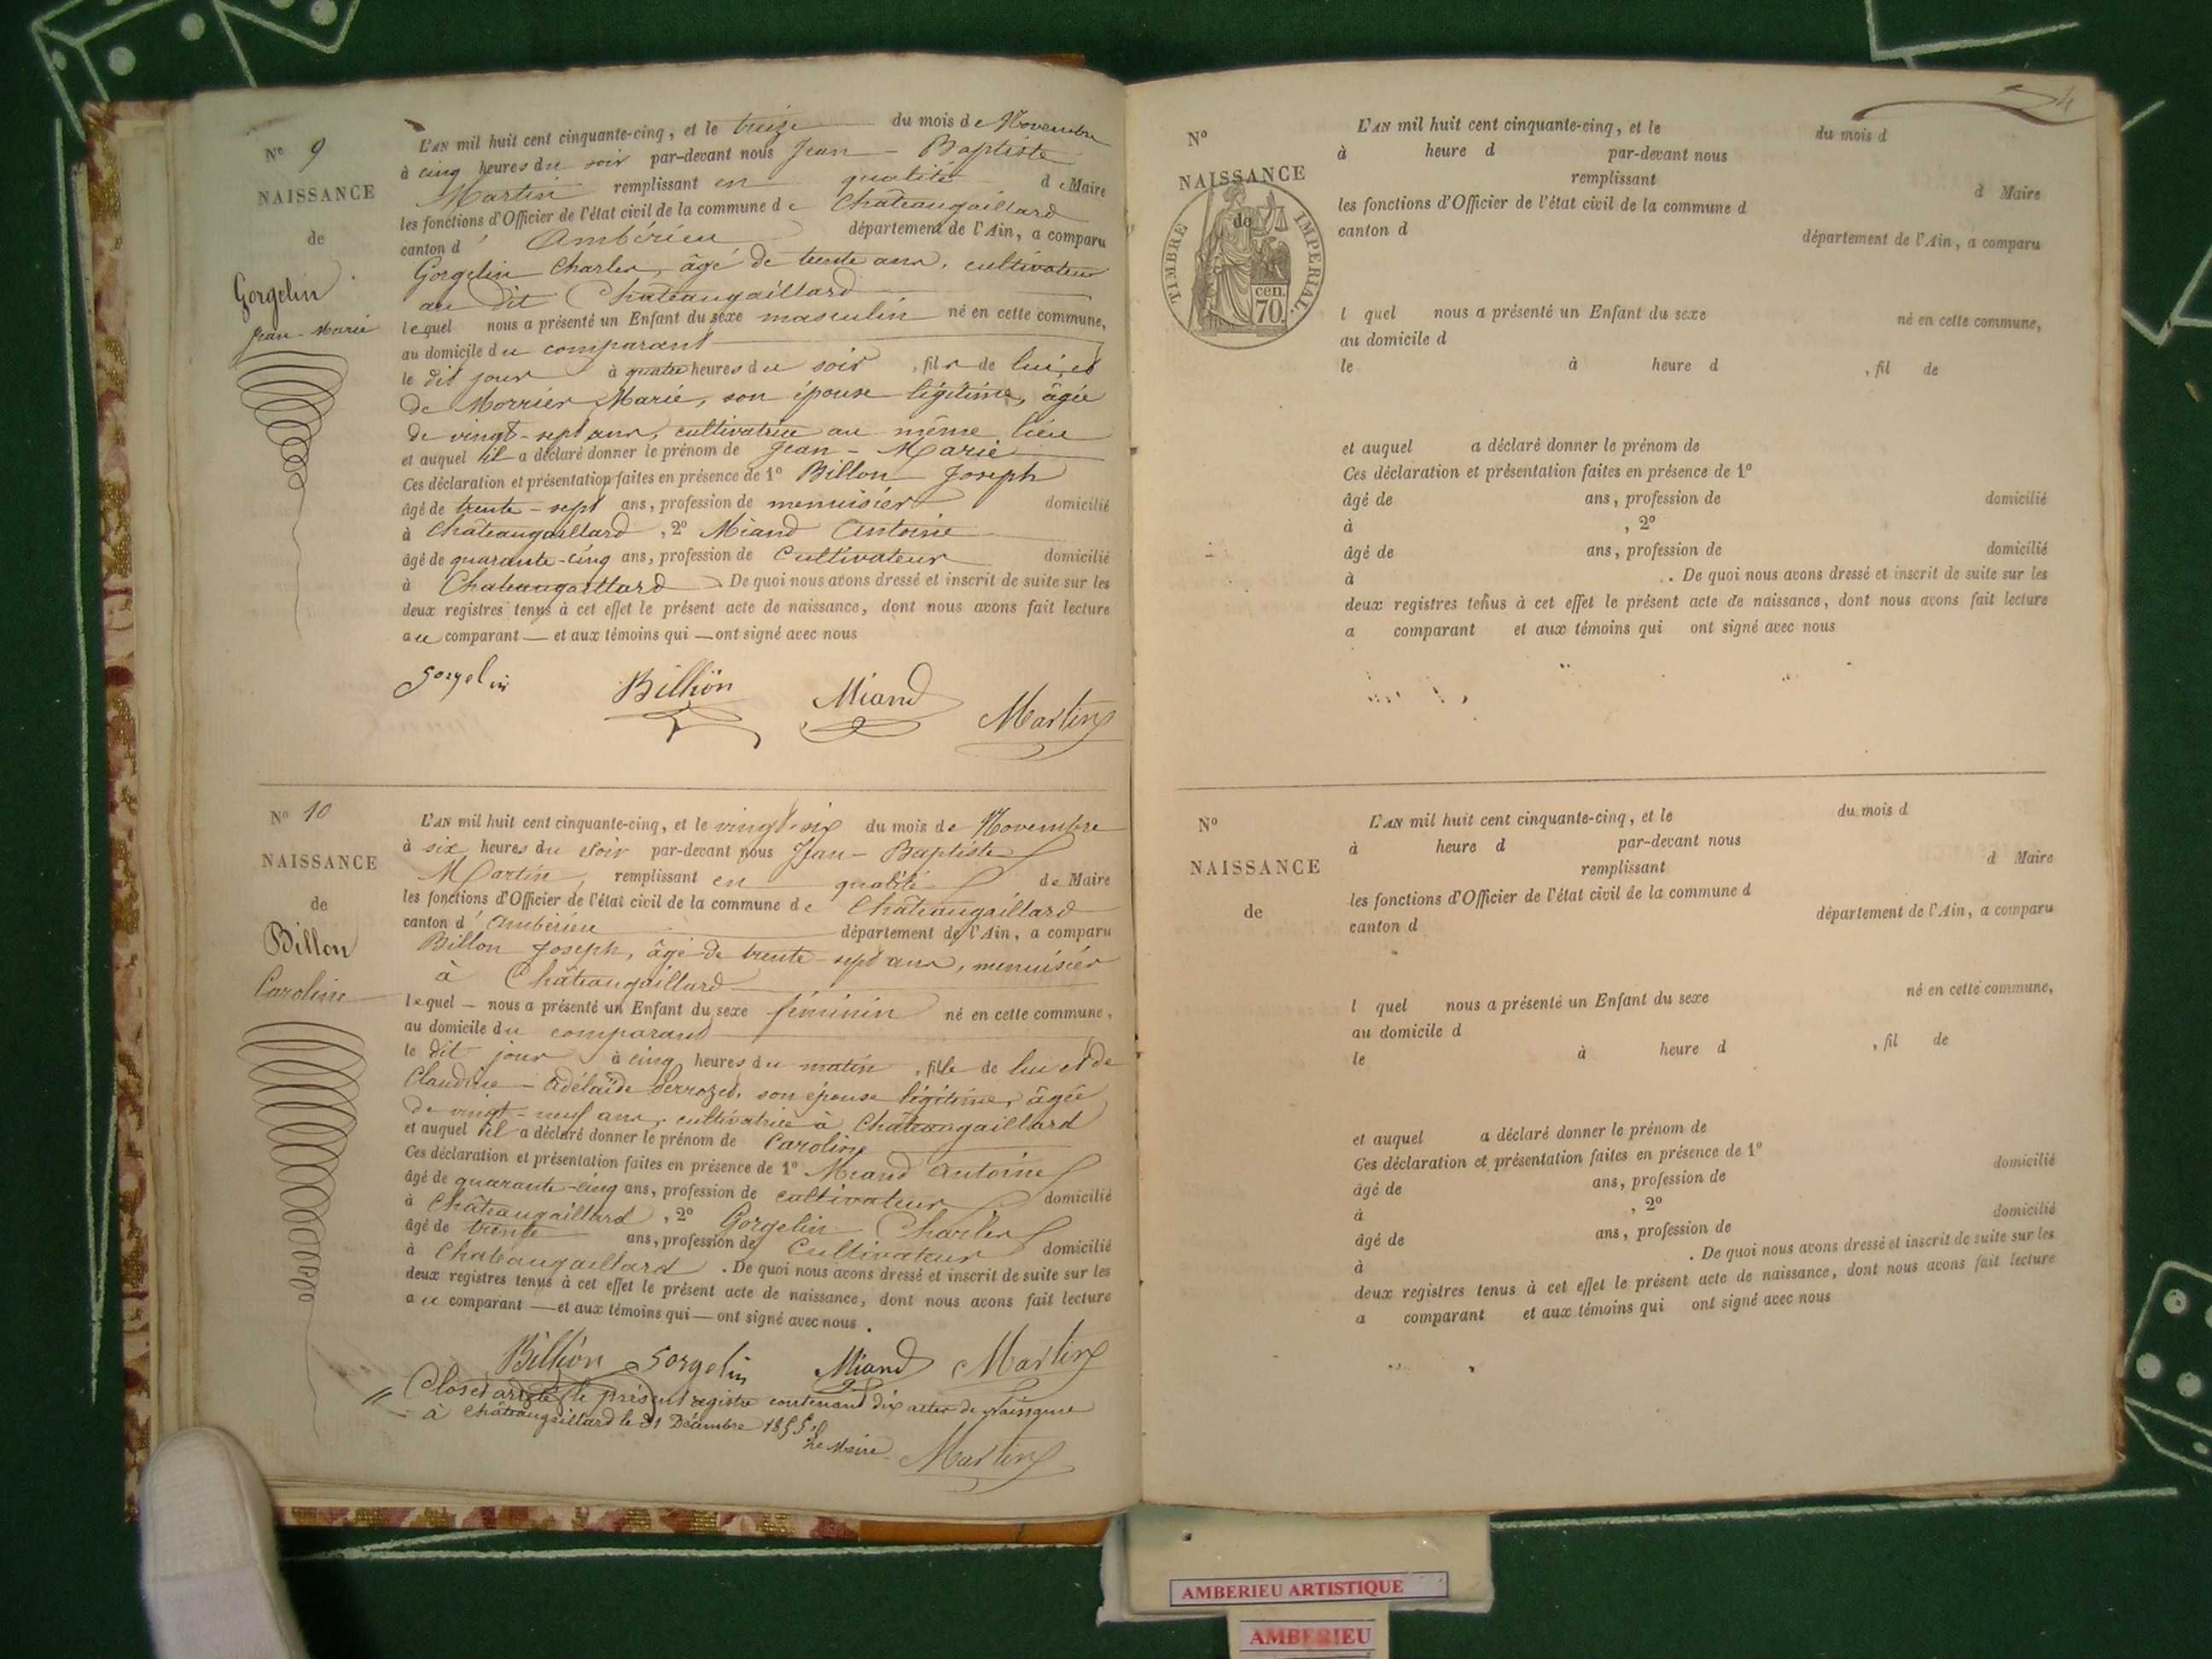 N° 9
NAISSANCE
de
Gorgelin
Jean-Marie
L'AN mil huit cent cinquante-cinq, et le treize du mois de Novembre
à cinq heures du soir par-devant nous Jean-Baptiste
Martin remplissant en qualité de Maire
les fonctions d'Officier de l'état civil de la commune de Châteaugaillard
canton d'Ambérieu département de l'Ain, a comparu
Gorgelin Charles, âgé de trente ans, cultivateur
au dit Châteaugaillard
lequel nous a présenté un Enfant du sexe masculin né en cette commune,
au domicile du comparant
le dit jour à quatre heures du soir, fils de lui, et
de Morrier Marie, son épouse légitime, âgée
de vingt-sept ans, cultivatrice au même lieu
et auquel il a déclaré donner le prénom de Jean-Marie
Ces déclaration et présentation faites en présence de 1° Billon Joseph
âgé de trente-sept ans, profession de menuisier domicilié
à Châteaugaillard, 2° Miand Antoine
âgé de quarante-cinq ans, profession de Cultivateur domicilié
à Chateaugaillard De quoi nous avons dressé et inscrit de suite sur les
deux registres tenus à cet effet le présent acte de naissance, dont nous avons fait lecture
au comparant — et aux témoins qui — ont signé avec nous
Gorgelin Billion Miand Martin
N° 10
NAISSANCE
de
Billon
Caroline
L'AN mil huit cent cinquante-cinq, et le vingt-six du mois de Novembre
à six heures du soir par-devant nous Jean-Baptiste
Martin, remplissant en qualité de Maire
les fonctions d'Officier de l'état civil de la commune de Châteaugaillard
canton d'Ambérieu département de l'Ain, a comparu
Billon Joseph, âgé de trente-sept ans, menuisier
à Châteaugaillard
lequel — nous a présenté un Enfant du sexe féminin né en cette commune,
au domicile du comparant
le dit jour à cinq heures du matin, fille de lui et de
Claudine-Adélaïde son épouse légitime, âgée
de vingt-neuf ans, cultivatrice à Châteaugaillard
et auquel il a déclaré donner le prénom de Caroline
Ces déclaration et présentation faites en présence de 1° Miand Antoine
âgé de quarante-cinq ans, profession de cultivateur domicilié
à Châteaugaillard, 2° Gorgelin Charles
âgé de trente ans, profession de Cultivateur domicilié
à Chateaugaillard. De quoi nous avons dressé et inscrit de suite sur les
deux registres tenus à cet effet le présent acte de naissance, dont nous avons fait lecture
au comparant — et aux témoins qui — ont signé avec nous.
Billion Gorgelin Miand Martin
Clos et arrêté le présent registre contenant dix actes de Naissance
à Châteaugaillard le 31 Décembre 1855
Le Maire
Martin
N°
NAISSANCE
de
TIMBRE IMPERIAL.
70 cen.
L'AN mil huit cent cinquante-cinq, et le du mois d
à heure d par-devant nous
remplissant d Maire
les fonctions d'Officier de l'état civil de la commune d
canton d département de l'Ain, a comparu
l quel nous a présenté un Enfant du sexe né en cette commune,
au domicile d
le à heure d , fil de
et auquel a déclaré donner le prénom de
Ces déclaration et présentation faites en présence de 1°
âgé de ans, profession de domicilié
à , 2°
âgé de ans, profession de domicilié
à . De quoi nous avons dressé et inscrit de suite sur les
deux registres tenus à cet effet le présent acte de naissance, dont nous avons fait lecture
a comparant et aux témoins qui ont signé avec nous
N°
NAISSANCE
de
L'AN mil huit cent cinquante-cinq, et le du mois d
à heure d par-devant nous
remplissant d Maire
les fonctions d'Officier de l'état civil de la commune d
canton d département de l'Ain, a comparu
l quel nous a présenté un Enfant du sexe né en cette commune,
au domicile d
le à heure d , fil de
et auquel a déclaré donner le prénom de
Ces déclaration et présentation faites en présence de 1°
âgé de ans, profession de domicilié
à , 2°
âgé de ans, profession de domicilié
à . De quoi nous avons dressé et inscrit de suite sur les
deux registres tenus à cet effet le présent acte de naissance, dont nous avons fait lecture
a comparant et aux témoins qui ont signé avec nous
AMBERIEU ARTISTIQUE
AMBERIEU